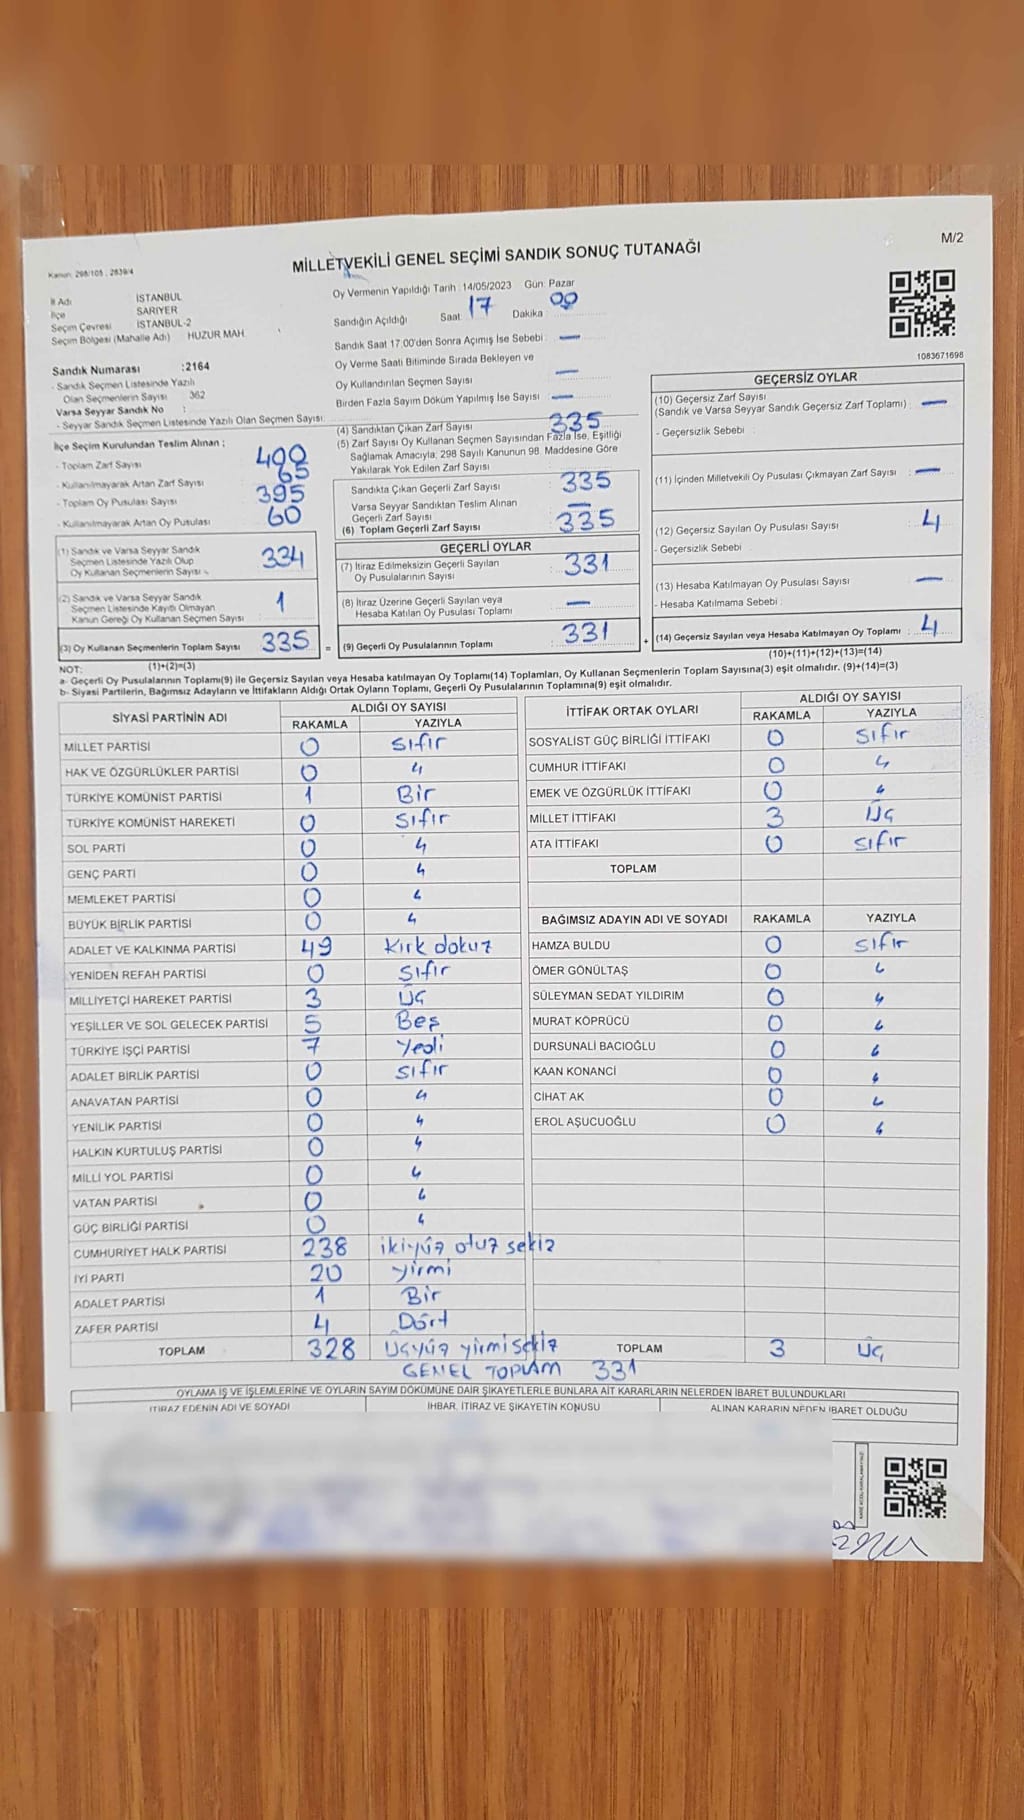 M/2
Kanun: 298/105 , 2839/4
MİLLETVEKİLİ GENEL SEÇİMİ SANDIK SONUÇ TUTANAĞI
İl Adı İSTANBUL
İlçe SARIYER
Seçim Çevresi İSTANBUL-2
Seçim Bölgesi (Mahalle Adı) HUZUR MAH.
Sandık Numarası :2164
- Sandık Seçmen Listesinde Yazılı
Olan Seçmenlerin Sayısı 362
Varsa Seyyar Sandık No :
- Seyyar Sandık Seçmen Listesinde Yazılı Olan Seçmen Sayısı:
Oy Vermenin Yapıldığı Tarih : 14/05/2023 Gün: Pazar
Sandığın Açıldığı Saat : 17 Dakika : 00
Sandık Saat 17:00'den Sonra Açımış İse Sebebi : —
Oy Verme Saati Bitiminde Sırada Bekleyen ve
Oy Kullandırılan Seçmen Sayısı —
Birden Fazla Sayım Döküm Yapılmış İse Sayısı : —
1083671698
İlçe Seçim Kurulundan Teslim Alınan ;
- Toplam Zarf Sayısı 400
- Kullanılmayarak Artan Zarf Sayısı 65
- Toplam Oy Pusulası Sayısı 395
- Kullanılmayarak Artan Oy Pusulası 60
(1) Sandık ve Varsa Seyyar Sandık
Seçmen Listesinde Yazılı Olup
Oy Kullanan Seçmenlerin Sayısı - 334
(2) Sandık ve Varsa Seyyar Sandık
Seçmen Listesinde Kayıtlı Olmayan
Kanun Gereği Oy Kullanan Seçmen Sayısı 1
(3) Oy Kullanan Seçmenlerin Toplam Sayısı 335
(1)+(2)=(3)
(4) Sandıktan Çıkan Zarf Sayısı 335
(5) Zarf Sayısı Oy Kullanan Seçmen Sayısından Fazla İse, Eşitliği
Sağlamak Amacıyla; 298 Sayılı Kanunun 98. Maddesine Göre
Yakılarak Yok Edilen Zarf Sayısı
Sandıkta Çıkan Geçerli Zarf Sayısı 335
Varsa Seyyar Sandıktan Teslim Alınan
Geçerli Zarf Sayısı —
(6) Toplam Geçerli Zarf Sayısı 335
GEÇERLİ OYLAR
(7) İtiraz Edilmeksizin Geçerli Sayılan
Oy Pusulalarının Sayısı 331
(8) İtiraz Üzerine Geçerli Sayılan veya
Hesaba Katılan Oy Pusulası Toplamı —
= (9) Geçerli Oy Pusulalarının Toplamı 331 +
GEÇERSİZ OYLAR
(10) Geçersiz Zarf Sayısı
(Sandık ve Varsa Seyyar Sandık Geçersiz Zarf Toplamı) : —
- Geçersizlik Sebebi :
(11) İçinden Milletvekili Oy Pusulası Çıkmayan Zarf Sayısı : —
(12) Geçersiz Sayılan Oy Pusulası Sayısı 4
- Geçersizlik Sebebi
(13) Hesaba Katılmayan Oy Pusulası Sayısı —
- Hesaba Katılmama Sebebi :
(14) Geçersiz Sayılan veya Hesaba Katılmayan Oy Toplamı : 4
(10)+(11)+(12)+(13)=(14)
NOT:
a- Geçerli Oy Pusulalarının Toplamı(9) ile Geçersiz Sayılan veya Hesaba katılmayan Oy Toplamı(14) Toplamları, Oy Kullanan Seçmenlerin Toplam Sayısına(3) eşit olmalıdır. (9)+(14)=(3)
b- Siyasi Partilerin, Bağımsız Adayların ve İttifakların Aldığı Ortak Oyların Toplamı, Geçerli Oy Pusulalarının Toplamına(9) eşit olmalıdır.
SİYASİ PARTİNİN ADI ALDIĞI OY SAYISI
RAKAMLA YAZIYLA
MİLLET PARTİSİ 0 sıfır
HAK VE ÖZGÜRLÜKLER PARTİSİ 0 "
TÜRKİYE KOMÜNİST PARTİSİ 1 Bir
TÜRKİYE KOMÜNİST HAREKETİ 0 sıfır
SOL PARTİ 0 "
GENÇ PARTİ 0 "
MEMLEKET PARTİSİ 0 "
BÜYÜK BİRLİK PARTİSİ 0 "
ADALET VE KALKINMA PARTİSİ 49 Kırk dokuz
YENİDEN REFAH PARTİSİ 0 sıfır
MİLLİYETÇİ HAREKET PARTİSİ 3 Üç
YEŞİLLER VE SOL GELECEK PARTİSİ 5 Beş
TÜRKİYE İŞÇİ PARTİSİ 7 Yedi
ADALET BİRLİK PARTİSİ 0 sıfır
ANAVATAN PARTİSİ 0 "
YENİLİK PARTİSİ 0 "
HALKIN KURTULUŞ PARTİSİ 0 "
MİLLİ YOL PARTİSİ 0 "
VATAN PARTİSİ 0 "
GÜÇ BİRLİĞİ PARTİSİ 0 "
CUMHURİYET HALK PARTİSİ 238 ikiyüz otuz sekiz
İYİ PARTİ 20 yirmi
ADALET PARTİSİ 1 Bir
ZAFER PARTİSİ 4 Dört
TOPLAM 328 Üçyüz yirmisekiz
GENEL TOPLAM 331
İTTİFAK ORTAK OYLARI ALDIĞI OY SAYISI
RAKAMLA YAZIYLA
SOSYALİST GÜÇ BİRLİĞİ İTTİFAKI 0 sıfır
CUMHUR İTTİFAKI 0 "
EMEK VE ÖZGÜRLÜK İTTİFAKI 0 "
MİLLET İTTİFAKI 3 Üç
ATA İTTİFAKI 0 sıfır
TOPLAM
BAĞIMSIZ ADAYIN ADI VE SOYADI RAKAMLA YAZIYLA
HAMZA BULDU 0 sıfır
ÖMER GÖNÜLTAŞ 0 "
SÜLEYMAN SEDAT YILDIRIM 0 "
MURAT KÖPRÜCÜ 0 "
DURSUNALİ BACIOĞLU 0 "
KAAN KONANCİ 0 "
CİHAT AK 0 "
EROL AŞUCUOĞLU 0 "
TOPLAM 3 Üç
OYLAMA İŞ VE İŞLEMLERİNE VE OYLARIN SAYIM DÖKÜMÜNE DAİR ŞİKAYETLERLE BUNLARA AİT KARARLARIN NELERDEN İBARET BULUNDUKLARI
İTİRAZ EDENİN ADI VE SOYADI İHBAR, İTİRAZ VE ŞİKAYETİN KONUSU ALINAN KARARIN NEDEN İBARET OLDUĞU